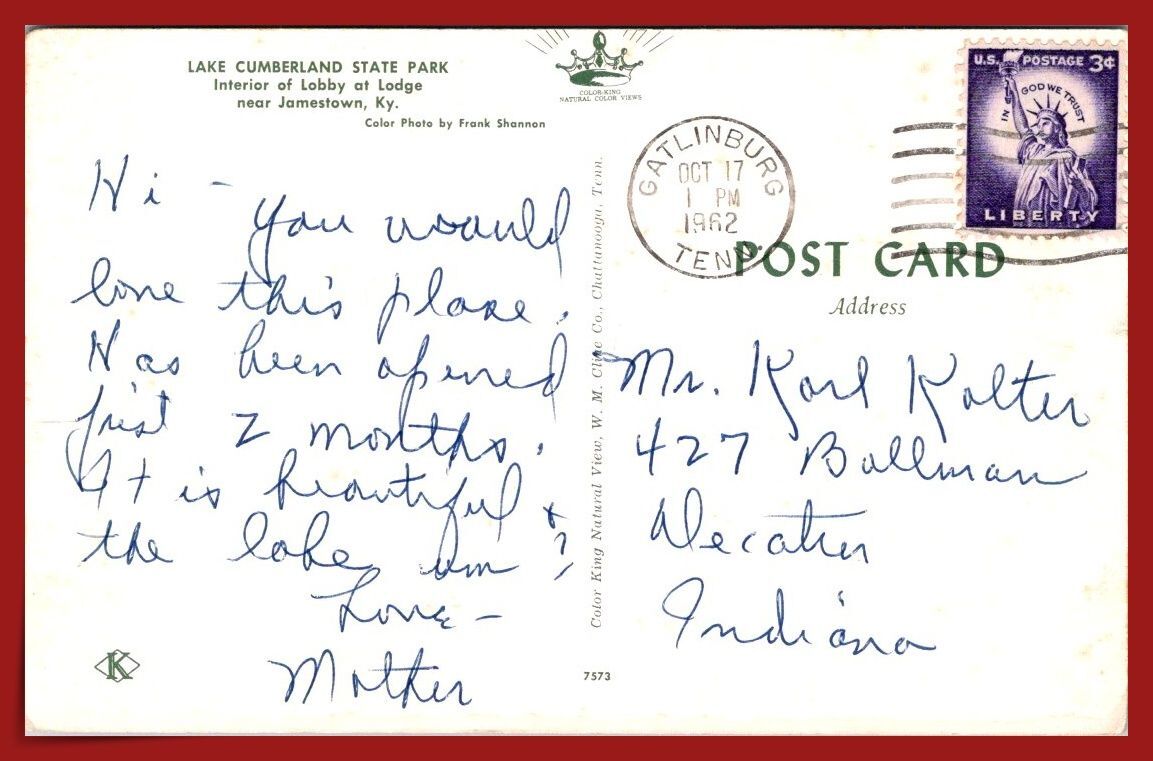 LAKE CUMBERLAND STATE PARK
Interior of Lobby at Lodge
near Jamestown, Ky.
Color Photo by Frank Shannon
COLOR-KING
NATURAL COLOR VIEWS
Hi - You would
love this place.
Has been opened
just 2 months.
It is beautiful &
the lake um ?
Love -
Mother
K
Color King Natural View, W. M. Cline Co., Chattanooga, Tenn.
7573
GATLINBURG
OCT 17
1 PM
1962
TENN.
U.S. POSTAGE 3¢
IN GOD WE TRUST
LIBERTY
POST CARD
Address
Mr. Karl Kolter
427 Bollman
Decatur
Indiana